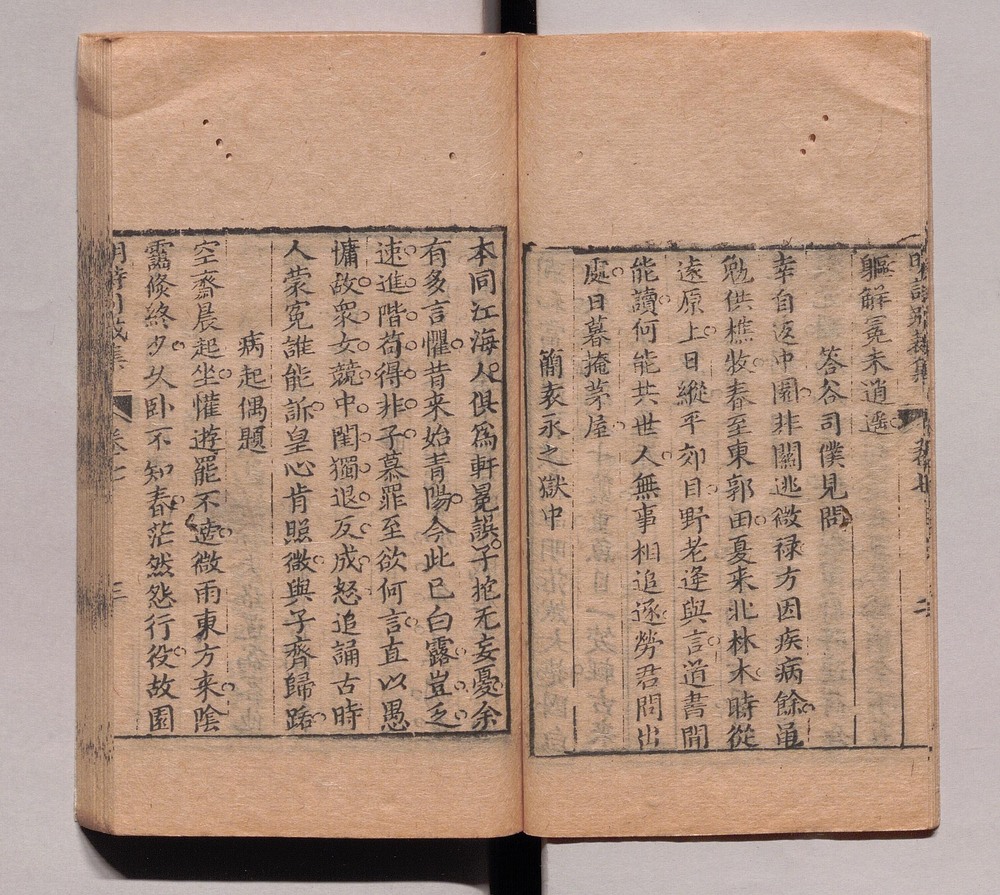 軀解冕未逍遥
答谷司僕見問
幸自返中園非關逃微禄方因疾病餘黽
勉供樵牧春至東郭田夏來北林木時從
遠原上日縱平郊目野老逢與言道書閒
能讀何能共世人無事相追逐勞君問出
處日暮掩茅屋
簡袁永之獄中
本同江海人俱爲軒冕誤子抱无妄憂余
有多言懼昔來始青陽今此已白露豈乏
速進階苟得非子慕罪至欲何言直以愚
慵故衆女競中閨獨退反成怒追誦古時
人蒙冤誰能訴皇心肯照微與子齊歸路
病起偶題
空齋晨起坐懽遊罷不適微雨東方來陰
靄倐終夕久卧不知春茫然怨行役故園
卷七 三